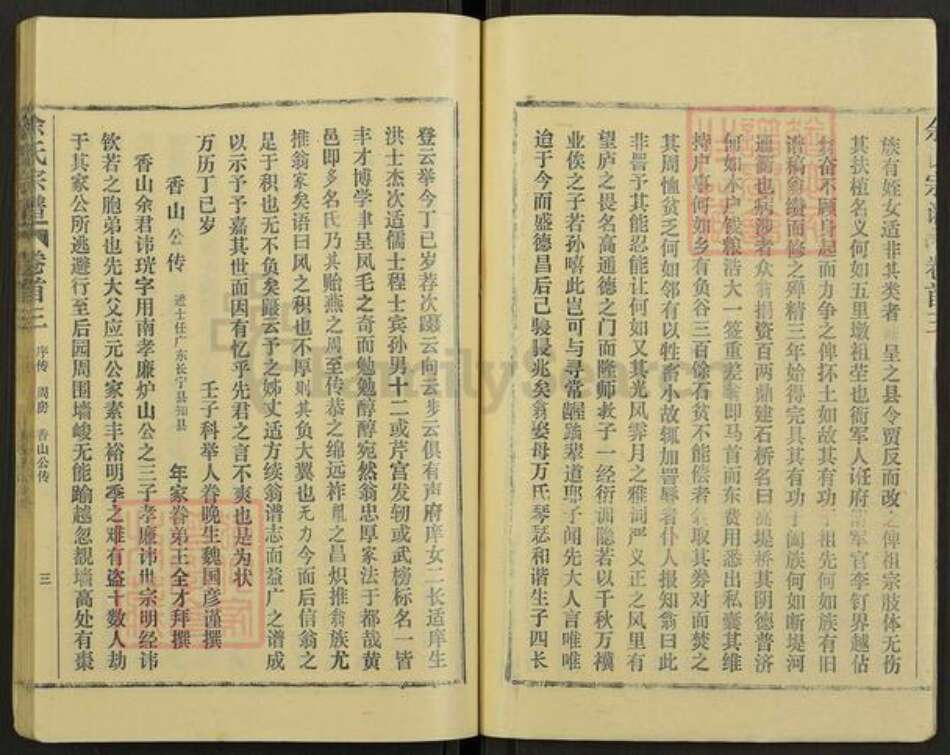 族有姪女适非其类者呈之县令贾反而改之俾祖宗肢体无伤
其扶植名义何如五里墩祖茔也衙军人诳府军官李钉界越佔
翁奋不顾身起而力争之俾抔土如故其有功祖先何如族有旧
谱稿翁缵而修之殚精三年始得完具其有功于阖族何如断堤河
通衢也病涉者众翁捐资百两鼎建石桥名曰高堤桥其阴德普济
何如本户钱粮浩大一签重差翁即马首而东费用悉出私囊其维
持户事何如乡有负谷三百馀石贫不能偿者翁取其券对面焚之
其周恤贫乏何如邻有以牲畜小故辄加詈辱者仆人报知翁曰此
非詈予其能忍能让何如又其光风霁月之雅词严义正之风里有
望庐之畏名高通德之门而隆师教子一经衍训隐若以千秋万禩
业俟之子若孙嘻此岂可与寻常龌龊辈道耶予闻先大人言唯唯
迨于今而盛德昌后已骎骎兆矣翁娶母万氏琴瑟和谐生子四长
登云举今丁巳岁荐次蹑云向云步云俱有声府庠女二长适庠生
洪士杰次适儒士程士宾孙男十二或芹宫发轫或武榜标名一皆
丰才博学聿呈凤毛之奇而勉勉醇醇宛然翁忠厚家法于都哉黄
邑即多名氏乃其贻燕之周至传恭之绵远祚胤之昌炽推翁族尤
推翁家矣语曰风之积也不厚则其负大翼也无力今而后信翁之
足于积也无不负矣蹑云予之姊丈适方续翁谱志而益广之谱成
以示予予嘉其世而因有忆乎先君之言不爽也是为状
万历丁巳岁 壬子科举人眷晚生魏国彦谨撰
香山公传 进士任广东长宁县知县 年家眷弟王全才拜撰
香山余君讳珖字用南孝廉炉山公之三子孝廉讳世宗明经讳
钦若之胞弟也先大父应元公家素丰裕明季之难有盗十数人劫
于其家公所逃避行至后园周围墙峻无能踰越忽覩墙高处有棗
余氏宗谱 卷首三 序传 周房 香山公传 三